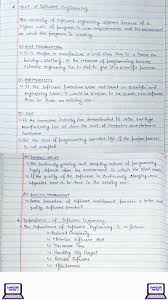 * Need of Software Engineering
The necessity of Software Engineering appears because of a
higher rate of progress in user requirements and the environment
on which the program is working.
(i) HUGE PROGRAMMING
It is simpler to manufacture a wall than to a house or
building, similarly, as the measure of programming become
extensive engineering has to step to give it a scientific process.
(ii) ADAPTABILITY
If the software procedure were not based on scientific and
engineering ideas, it would be simpler to re-create new software
than to scale an existing one.
(iii) COST
As the hardware industry has demonstrated its skills and huge
manufacturing has let down the cost of computer and electronic
hardware.
But the cost of programming remains high if the proper process
is not adapted.
(iv) DYNAMIC NATURE
The continually growing and adapting nature of programming
hugely depends upon the environment in which the client works.
If the quality of the software is continually changing, new
upgrades need to be done in the existing one.
(v) QUALITY MANAGEMENT
Better procedure of software development provides a better and
quality software product.
* Importance of Software Engineering
The Importance of Software Engineering is as follows
Reduces Complexity
Minimise Software Cost
Decrease Time
Handling Big Project
Reliable Software
Effectiveness